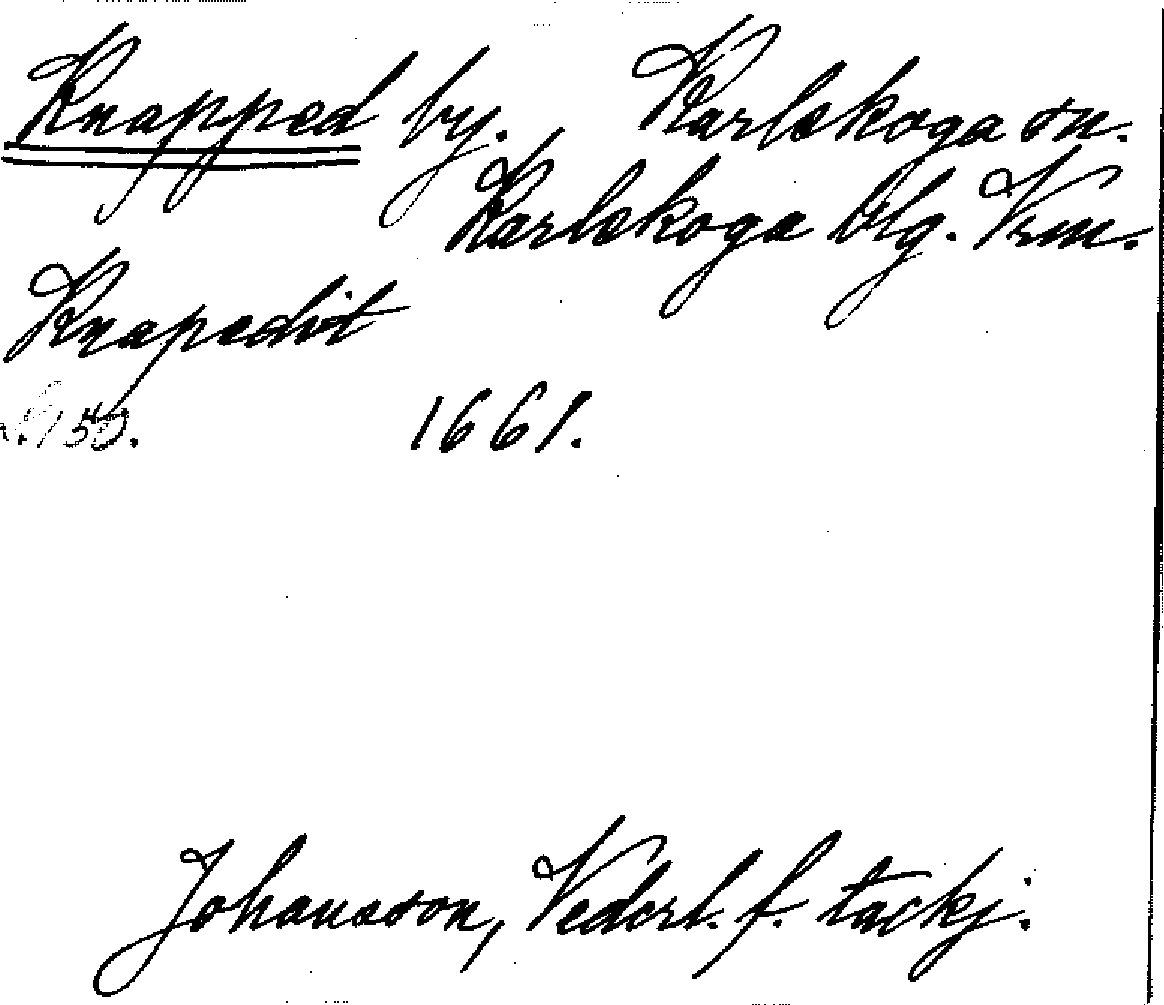 Knapped by. Karlskoga sn.
Karlskoga blg. Vrm.
Knapedit
s. 153. 1661.
Johansson, Vederl. f. tackj.